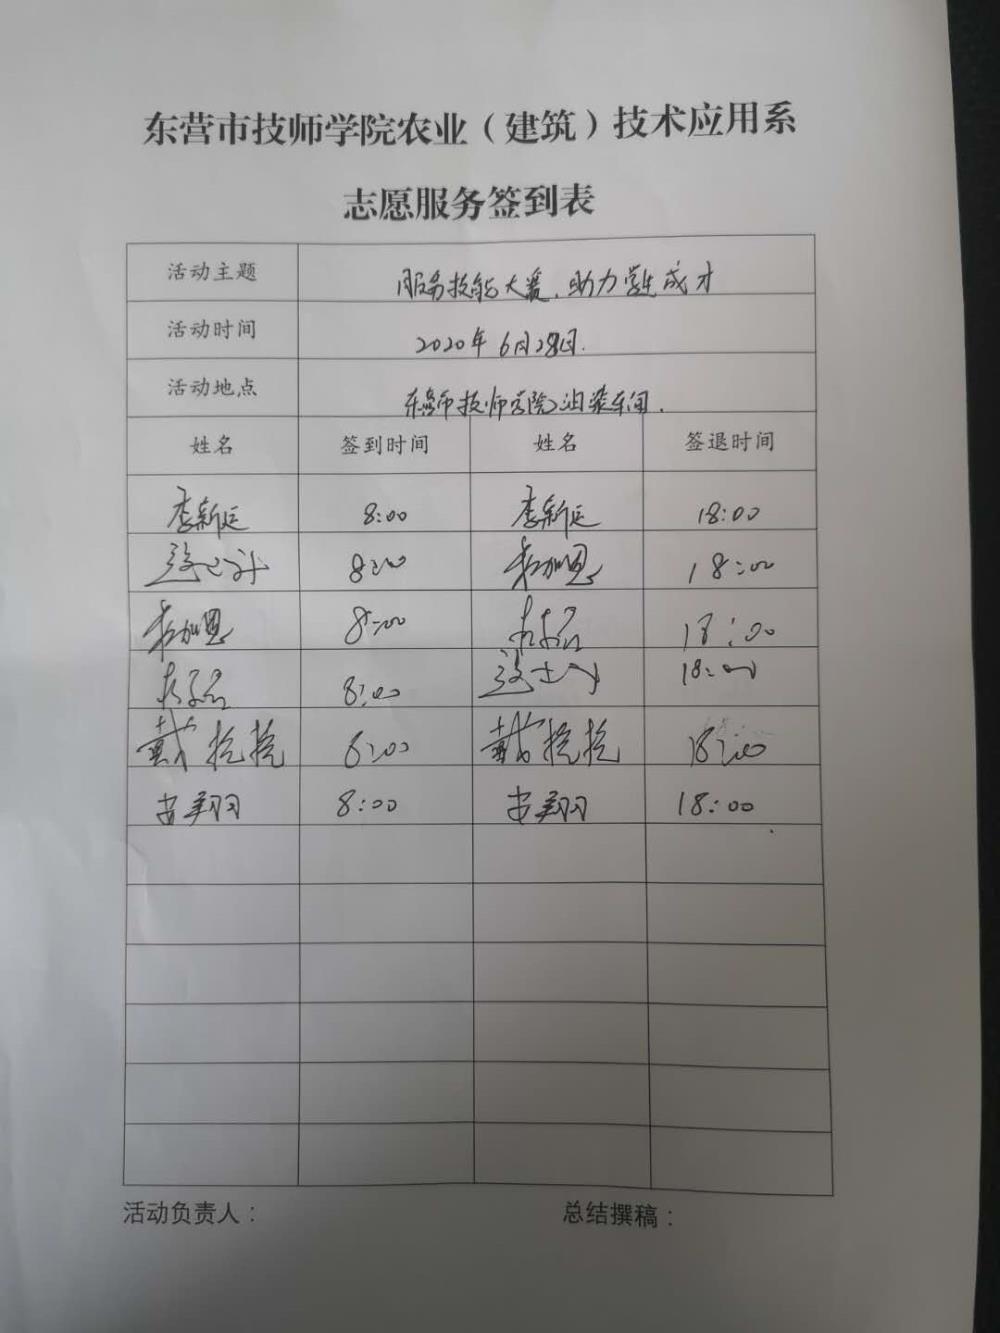 东营市技师学院农业（建筑）技术应用系
志愿服务签到表
活动主题 服务技能大赛.助力学生成才
活动时间 2020年6月28日.
活动地点 东营市技师学院油装车间.
姓名 签到时间 姓名 签退时间
李新廷 8:00 李新廷 18:00
8:00 18:00
8:00 18:00
8:00 18:00
戴挖挖 8:00 戴挖挖 18:00
安翔 8:00 安翔 18:00
活动负责人： 总结撰稿：